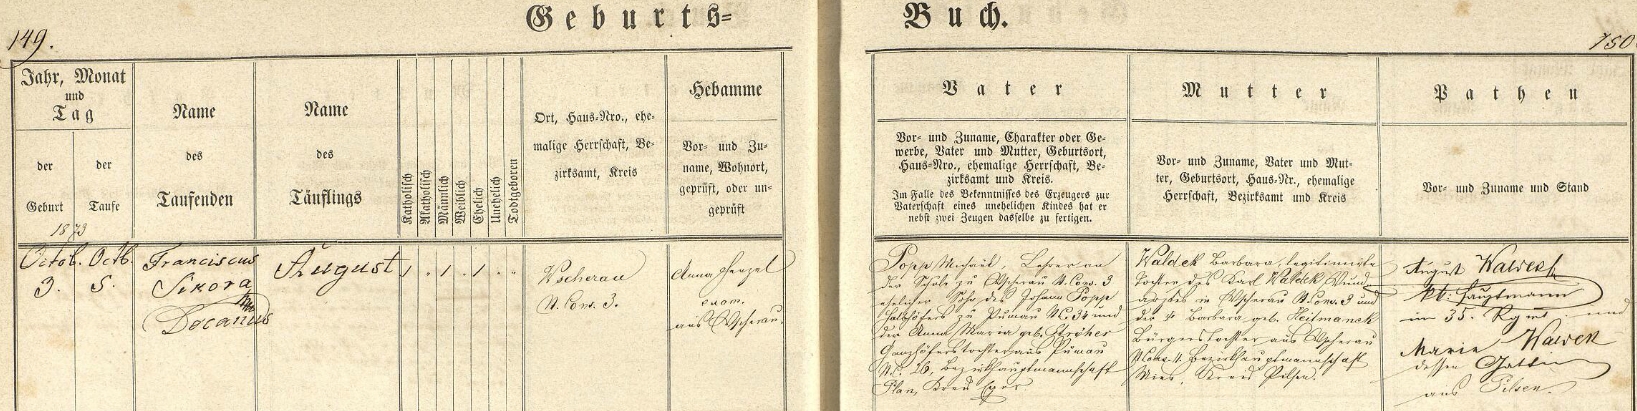 Geburts= Buch.
149.
150
Jahr, Monat
und
Tag
der
Geburt
der
Taufe
1873
Name
des
Taufenden
Name
des
Täuflings
Katholisch
Akatholisch
Männlich
Weiblich
Ehelich
Unehelich
Todtgeboren
Ort, Haus-Nro., ehe-
malige Herrschaft, Be-
zirksamt, Kreis
Hebamme
Vor- und Zu-
name, Wohnort,
geprüft, oder un-
geprüft
Vater
Vor- und Zuname, Charakter oder Ge-
werbe, Vater und Mutter, Geburtsort,
Haus-Nro., ehemalige Herrschaft, Be-
zirksamt und Kreis.
Im Falle des Bekenntnisses des Erzeugers zur
Vaterschaft eines unehelichen Kindes hat er
nebst zwei Zeugen dasselbe zu fertigen.
Mutter
Vor- und Zuname, Vater und Mut-
ter, Geburtsort, Haus-Nr., ehemalige
Herrschaft, Bezirksamt und Kreis
Pathen
Vor- und Zuname und Stand
Octob.
3.
Octb.
5.
Franciscus
Sikora
Decanus
August
1 . 1 . 1 . .
Wscherau
N. Cons. 3.
Anna Henzel
exam.
aus Wscherau.
Popp Michael, Lehrer an
der Schule zu Wscherau N. Cons. 3
ehelicher Sohn des Johann Popp
Halbhöfers zu Punau NC. 34 und
der Anna Maria geb. Ströher
Ganzhöferstochter aus Punau
NC. 26. Bezirkshauptmannschaft
Plan, Kreis Eger
Waldek Barbara, legitimirte
Tochter des Karl Waldek, Wund-
arztes in Wscherau N. Cons. 3 und
der + Barbara geb. Heitmanek
Bürgerstochter aus Wscherau
N. Cons. 4. Bezirkshauptmannschaft
Mies, Kreis Pilsen.
August
kk. Hauptmann
im 35. Regmt. und
Marie
dessen Gattin
aus Pilsen.